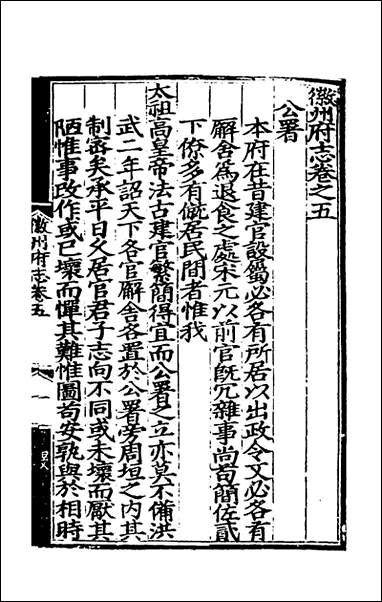 徽州府志卷之五
公署
本府在昔建官設屬必各有所居以出政令又必各有
廨舍為退食之處宋元以前官旣冗雜事尚苟簡佐貳
下僚多有僦居民間者惟我
太祖高皇帝法古建官繁簡得宜而公署之立亦莫不備洪
武二年詔天下各官廨舍各置於公署旁周垣之內其
制宻矣承平日久居官君子志向不同或未壞而厭其
陋惟事改作或已壞而憚其難惟圖苟安孰與於相時
徽州府志卷五
一